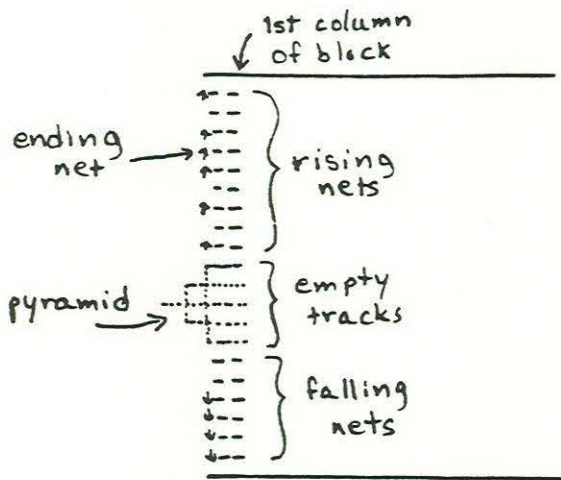 1st column
of block
ending
net
rising
nets
pyramid
empty
tracks
falling
nets